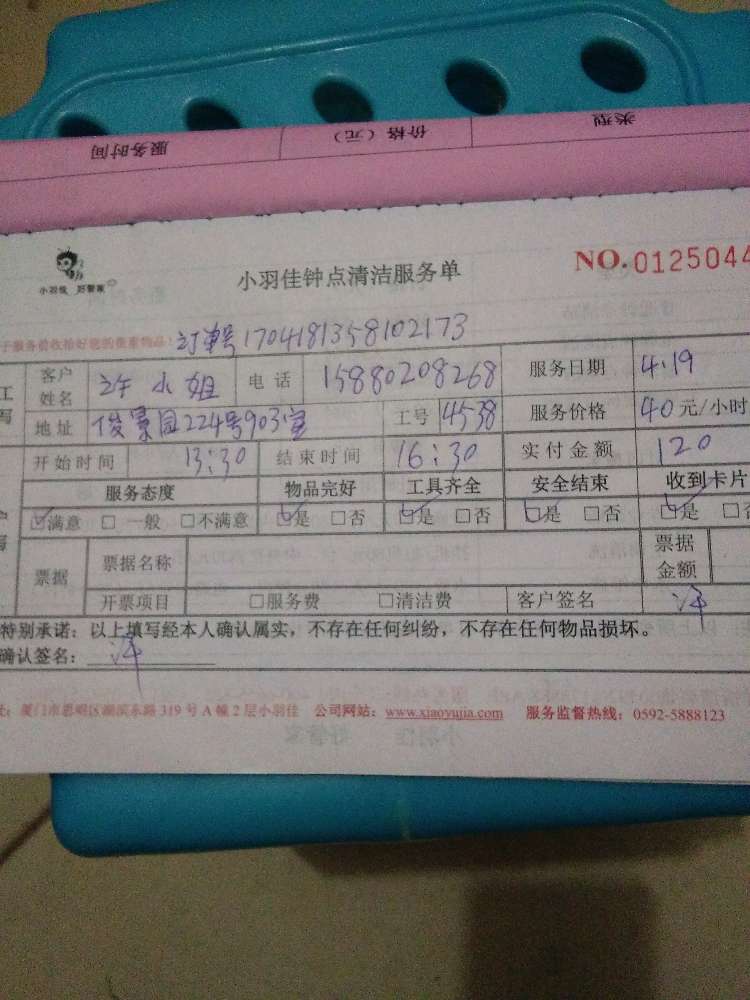 服务时间 价格（元） 类型
小羽佳 好管家
小羽佳钟点清洁服务单
NO.0125044
于服务前收拾好您的贵重物品！订单号1704181358102173
客户姓名 许小姐 电话 15880208268 服务日期 4.19
地址 俊景园224号903室 工号 4538 服务价格 40元/小时
开始时间 13:30 结束时间 16:30 实付金额 120
服务态度 物品完好 工具齐全 安全结束 收到卡片
☑满意 □一般 □不满意 ☑是 □否 ☑是 □否 ☑是 □否 ☑是 □否
票据 票据名称 票据金额
开票项目 □服务费 □清洁费 客户签名 许
特别承诺：以上填写经本人确认属实，不存在任何纠纷，不存在任何物品损坏。
确认签名：许
址：厦门市思明区湖滨东路 319 号 A 幢 2 层小羽佳 公司网站：www.xiaoyujia.com 服务监督热线：0592-5888123